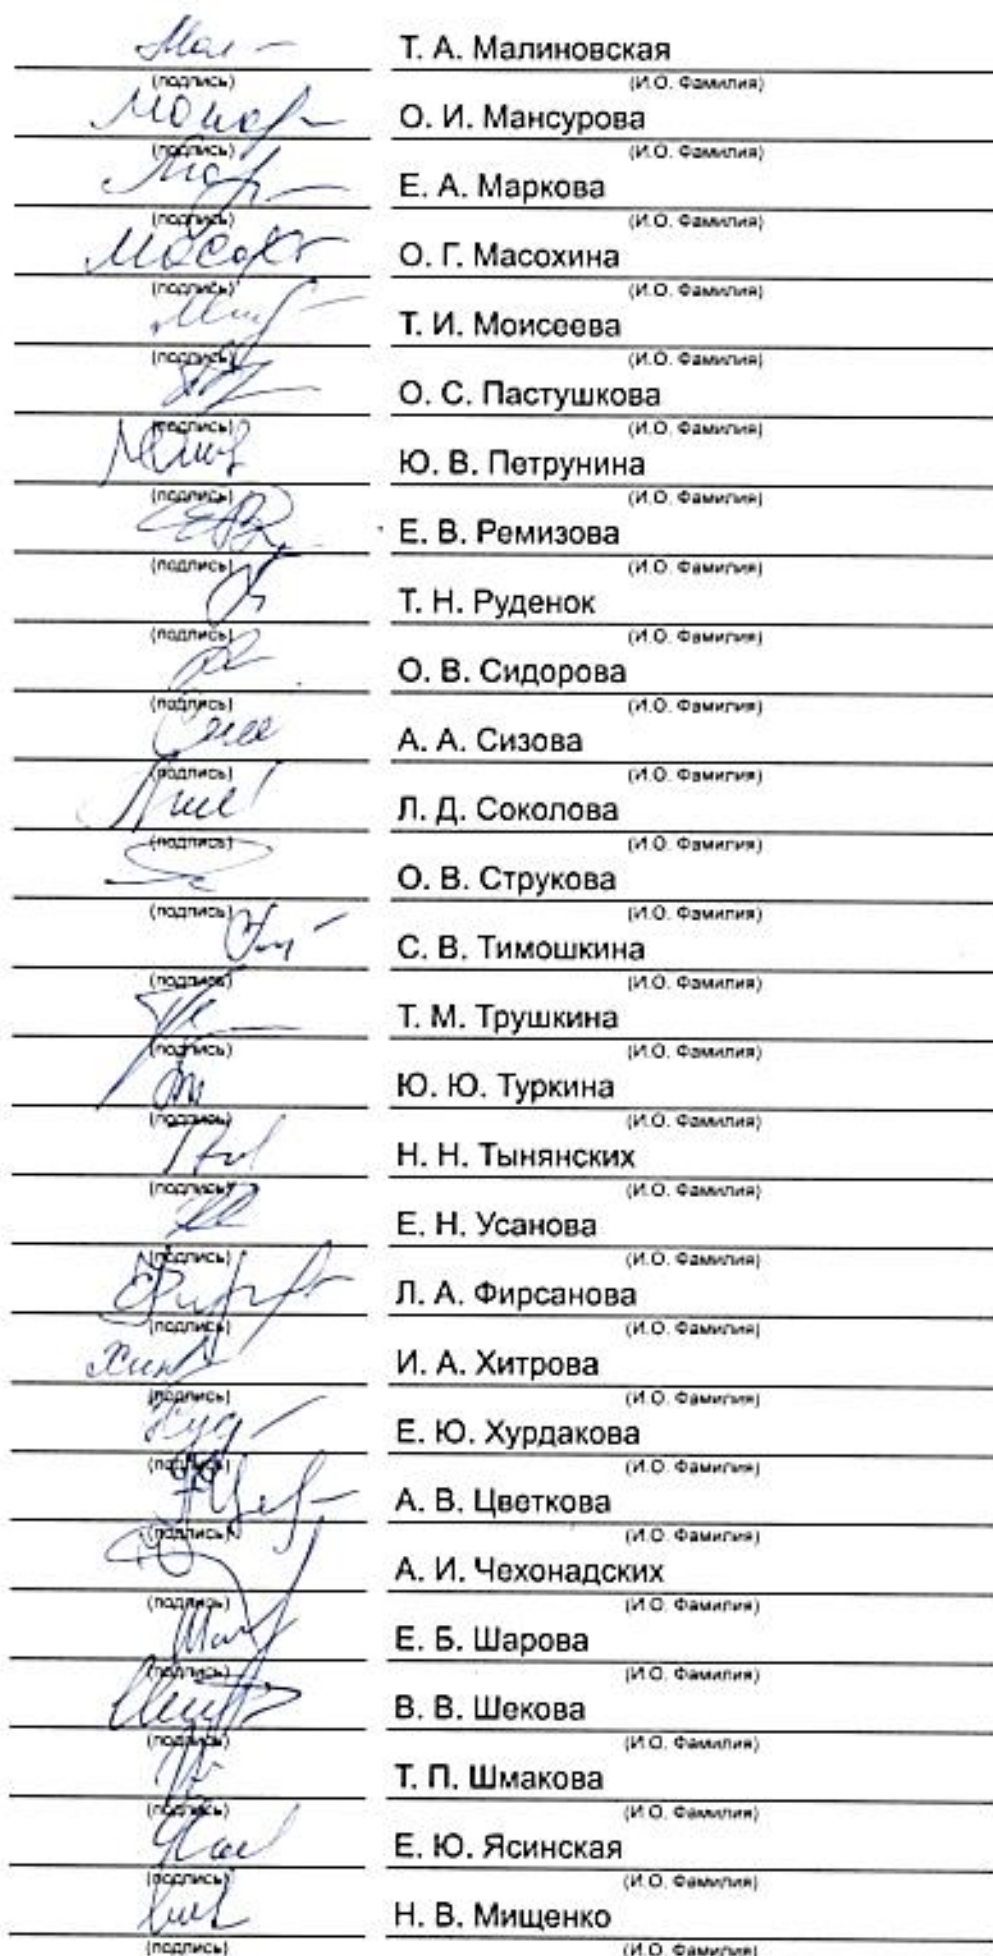 Т. А. Малиновская
(подпись) (И.О. Фамилия)
О. И. Мансурова
(подпись) (И.О. Фамилия)
Е. А. Маркова
(подпись) (И.О. Фамилия)
О. Г. Масохина
(подпись) (И.О. Фамилия)
Т. И. Моисеева
(подпись) (И.О. Фамилия)
О. С. Пастушкова
(подпись) (И.О. Фамилия)
Ю. В. Петрунина
(подпись) (И.О. Фамилия)
Е. В. Ремизова
(подпись) (И.О. Фамилия)
Т. Н. Руденок
(подпись) (И.О. Фамилия)
О. В. Сидорова
(подпись) (И.О. Фамилия)
А. А. Сизова
(подпись) (И.О. Фамилия)
Л. Д. Соколова
(подпись) (И.О. Фамилия)
О. В. Струкова
(подпись) (И.О. Фамилия)
С. В. Тимошкина
(подпись) (И.О. Фамилия)
Т. М. Трушкина
(подпись) (И.О. Фамилия)
Ю. Ю. Туркина
(подпись) (И.О. Фамилия)
Н. Н. Тынянских
(подпись) (И.О. Фамилия)
Е. Н. Усанова
(подпись) (И.О. Фамилия)
Л. А. Фирсанова
(подпись) (И.О. Фамилия)
И. А. Хитрова
(подпись) (И.О. Фамилия)
Е. Ю. Хурдакова
(подпись) (И.О. Фамилия)
А. В. Цветкова
(подпись) (И.О. Фамилия)
А. И. Чехонадских
(подпись) (И.О. Фамилия)
Е. Б. Шарова
(подпись) (И.О. Фамилия)
В. В. Шекова
(подпись) (И.О. Фамилия)
Т. П. Шмакова
(подпись) (И.О. Фамилия)
Е. Ю. Ясинская
(подпись) (И.О. Фамилия)
Н. В. Мищенко
(подпись) (И.О. Фамилия)